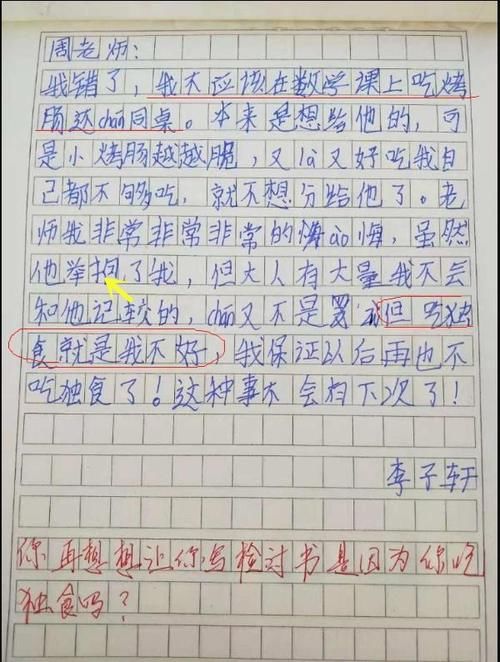 周老师:
我错了，我不应该在数学课上吃烤
肠还chan同桌。本来是想给他的，可
是小烤肠越越脆，又la又好吃我自
己都不够吃，就不想分给他了。老
师我非常非常非常的悔ao悔，虽然
他举抱了我，但大人有大量我不会
和他记较的，chan又不是罪 但吃独
食就是我不好，我保证以后再也不
吃独食了！这种事不会有下次了！
李子轩
你再想想让你写检讨书是因为你吃
独食吗？